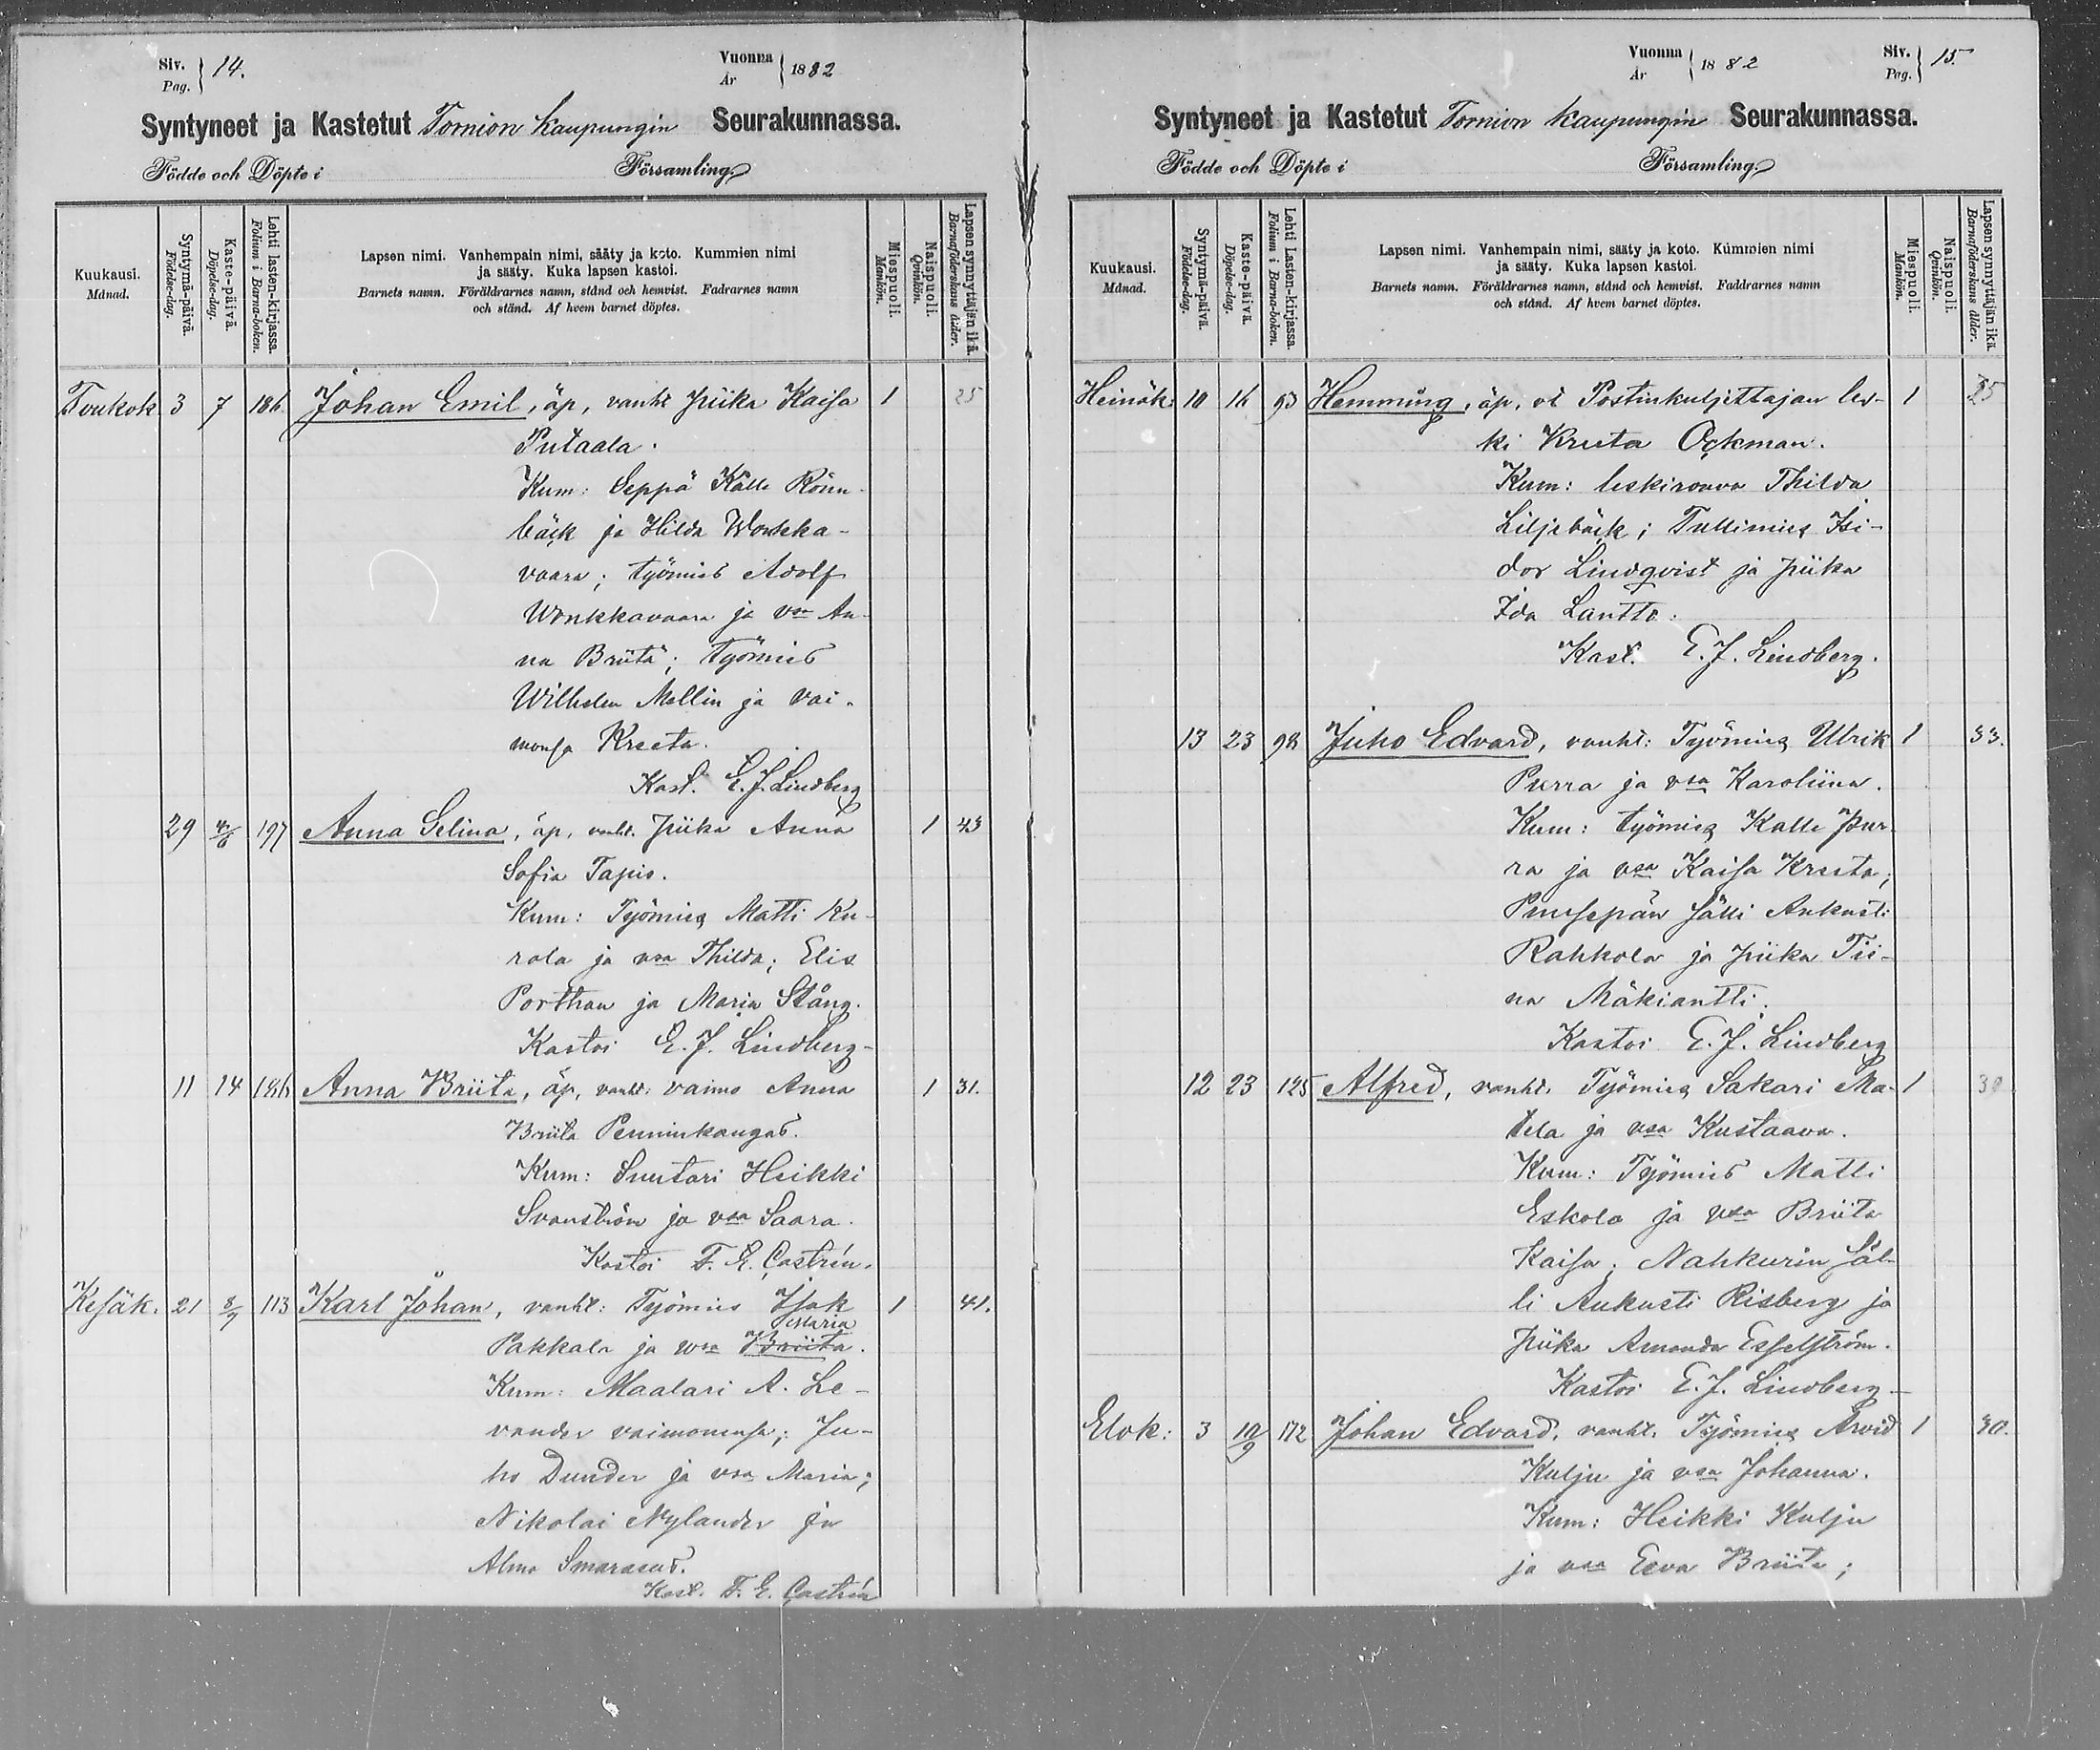 Siv. Pag. 14.
Vuonna År 1882
Syntyneet ja Kastetut Tornion kaupungin Seurakunnassa.
Födde och Döpte i Församling
Kuukausi. Månad.
Syntymä-päivä. Födelse-dag.
Kaste-päivä. Döpelse-dag.
Lehti lasten-kirjassa. Folium i Barna-boken.
Lapsen nimi. Vanhempain nimi, sääty ja koto. Kummien nimi
ja sääty. Kuka lapsen kastoi.
Barnets namn. Föräldrarnes namn, stånd och hemvist. Fadrarnes namn
och stånd. Af hvem barnet döptes.
Miespuoli. Mankön.
Naispuoli. Qvinkön.
Lapsen synnyttäjän ikä. Barnaföderskans ålder.
Toukok 3 7 186 Johan Emil, äp, vanht piika Kaisa 1 25
Putaala.
Kum: Seppä Kalle Rönn-
bäck ja Hilda Wonkka-
vaara; työmies Adolf
Wonkkavaara ja vsa An-
na Briita; Työmies
Wilhelm Mellin ja vai-
monsa Kreeta.
Kast. E. J. Lindberg
29 4/6 197 Anna Selina, äp, vanht. piika Anna 1 43
Sofia Tapio.
Kum: Työmies Matti Ku-
rola ja vsa Thilda; Elis
Porthan ja Maria Stång.
Kastoi E. J. Lindberg
11 14 186 Anna Briita, äp, vanht. vaimo Anna 1 31.
Briita Penninkangas.
Kum: Suutari Heikki
Svanström ja vsa Saara.
Kastoi F. E. Castrén.
Kesäk. 21 8/7 113 Karl Johan, vanht: Työmies Isak 1 41.
Maria
Pakkala ja vsa Briita.
Kum: Maalari A. Le-
vander vaimonensa; Ju-
ho Dunder ja vsa Maria;
Nikolai Nylander ja
Alma
Kast. F. E. Castrén
Vuonna År 1882
Siv. Pag. 15.
Syntyneet ja Kastetut Tornion kaupungin Seurakunnassa.
Födde och Döpte i Församling
Kuukausi. Månad.
Syntymä-päivä. Födelse-dag.
Kaste-päivä. Döpelse-dag.
Lehti Lasten-kirjassa. Folium i Barna-boken.
Lapsen nimi. Vanhempain nimi, sääty ja koto. Kummien nimi
ja sääty. Kuka lapsen kastoi.
Barnets namn. Föräldrarnes namn, stånd och hemvist. Faddrarnes namn
och stånd. Af hvem barnet döptes.
Miespuoli. Mankön.
Naispuoli. Qvinkön.
Lapsen synnyttäjän ikä. Barnaföderskans ålder.
Heinäk: 10 16 93 Hemming, äp. Postinkuljettajan les- 1 35
ki Kreeta Ockman.
Kum: leskirouva Thilda
Liljebäck; Tullimies Isi-
dor Lindqvist ja piika
Ida Lantto.
Kast. E. J. Lindberg.
13 23 98 Juho Edvard, vanht: Työmies Ulrik 1 33.
Purra ja vsa Karoliina.
Kum: työmies Kalle Pur-
ra ja vsa Kaisa Kreeta;
Puusepän sälli Aukusti
Rahkola ja piika Tii-
na Mäkiantti.
Kastoi E. J. Lindberg
12 23 125 Alfred, vanht. Työmies Sakari Ma- 1 30
tela ja vsa Kustaava.
Kum: Työmies Matti
Eskola ja vsa Briita
Kaisa; Nahkurin säl-
li Aukusti Risberg ja
piika Amanda Esselström.
Kastoi E. J. Lindberg
Elok: 3 10/9 172 Johan Edvard, vanht. Työmies Arvid 1 30.
Kulju ja vsa Johanna.
Kum: Heikki Kulju
ja vsa Eeva Briita;